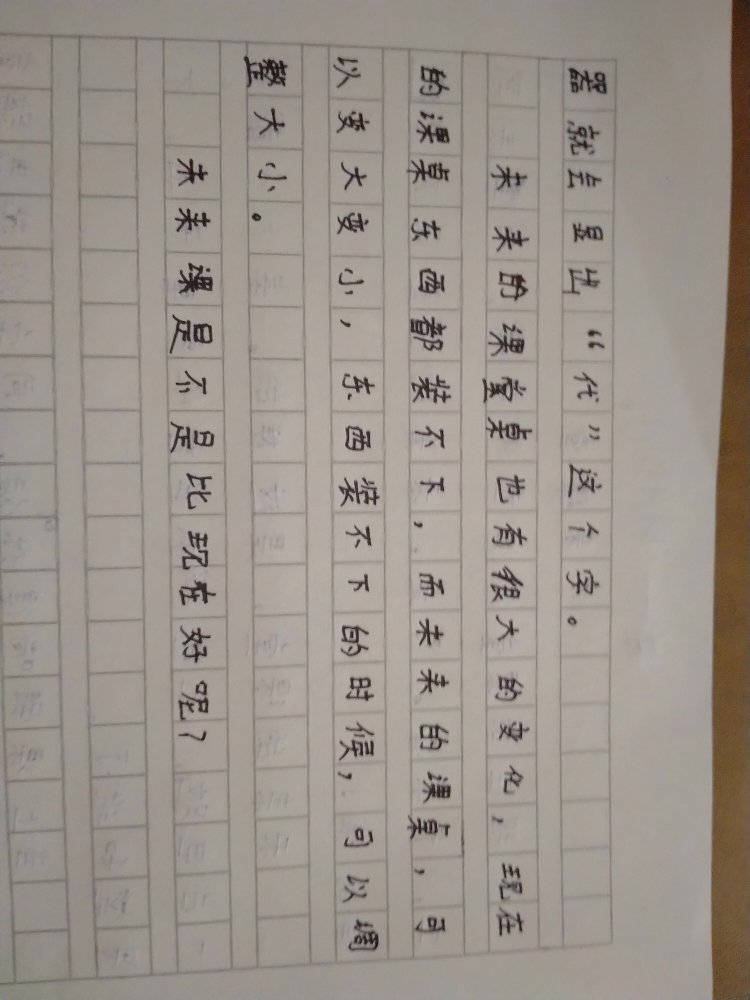 器就会显出“代”这个字。
未来的课堂桌也有很大的变化，现在
的课桌东西都装不下，而未来的课桌，可
以变大变小，东西装不下的时候，可以调
整大小。
未来课是不是比现在好呢？